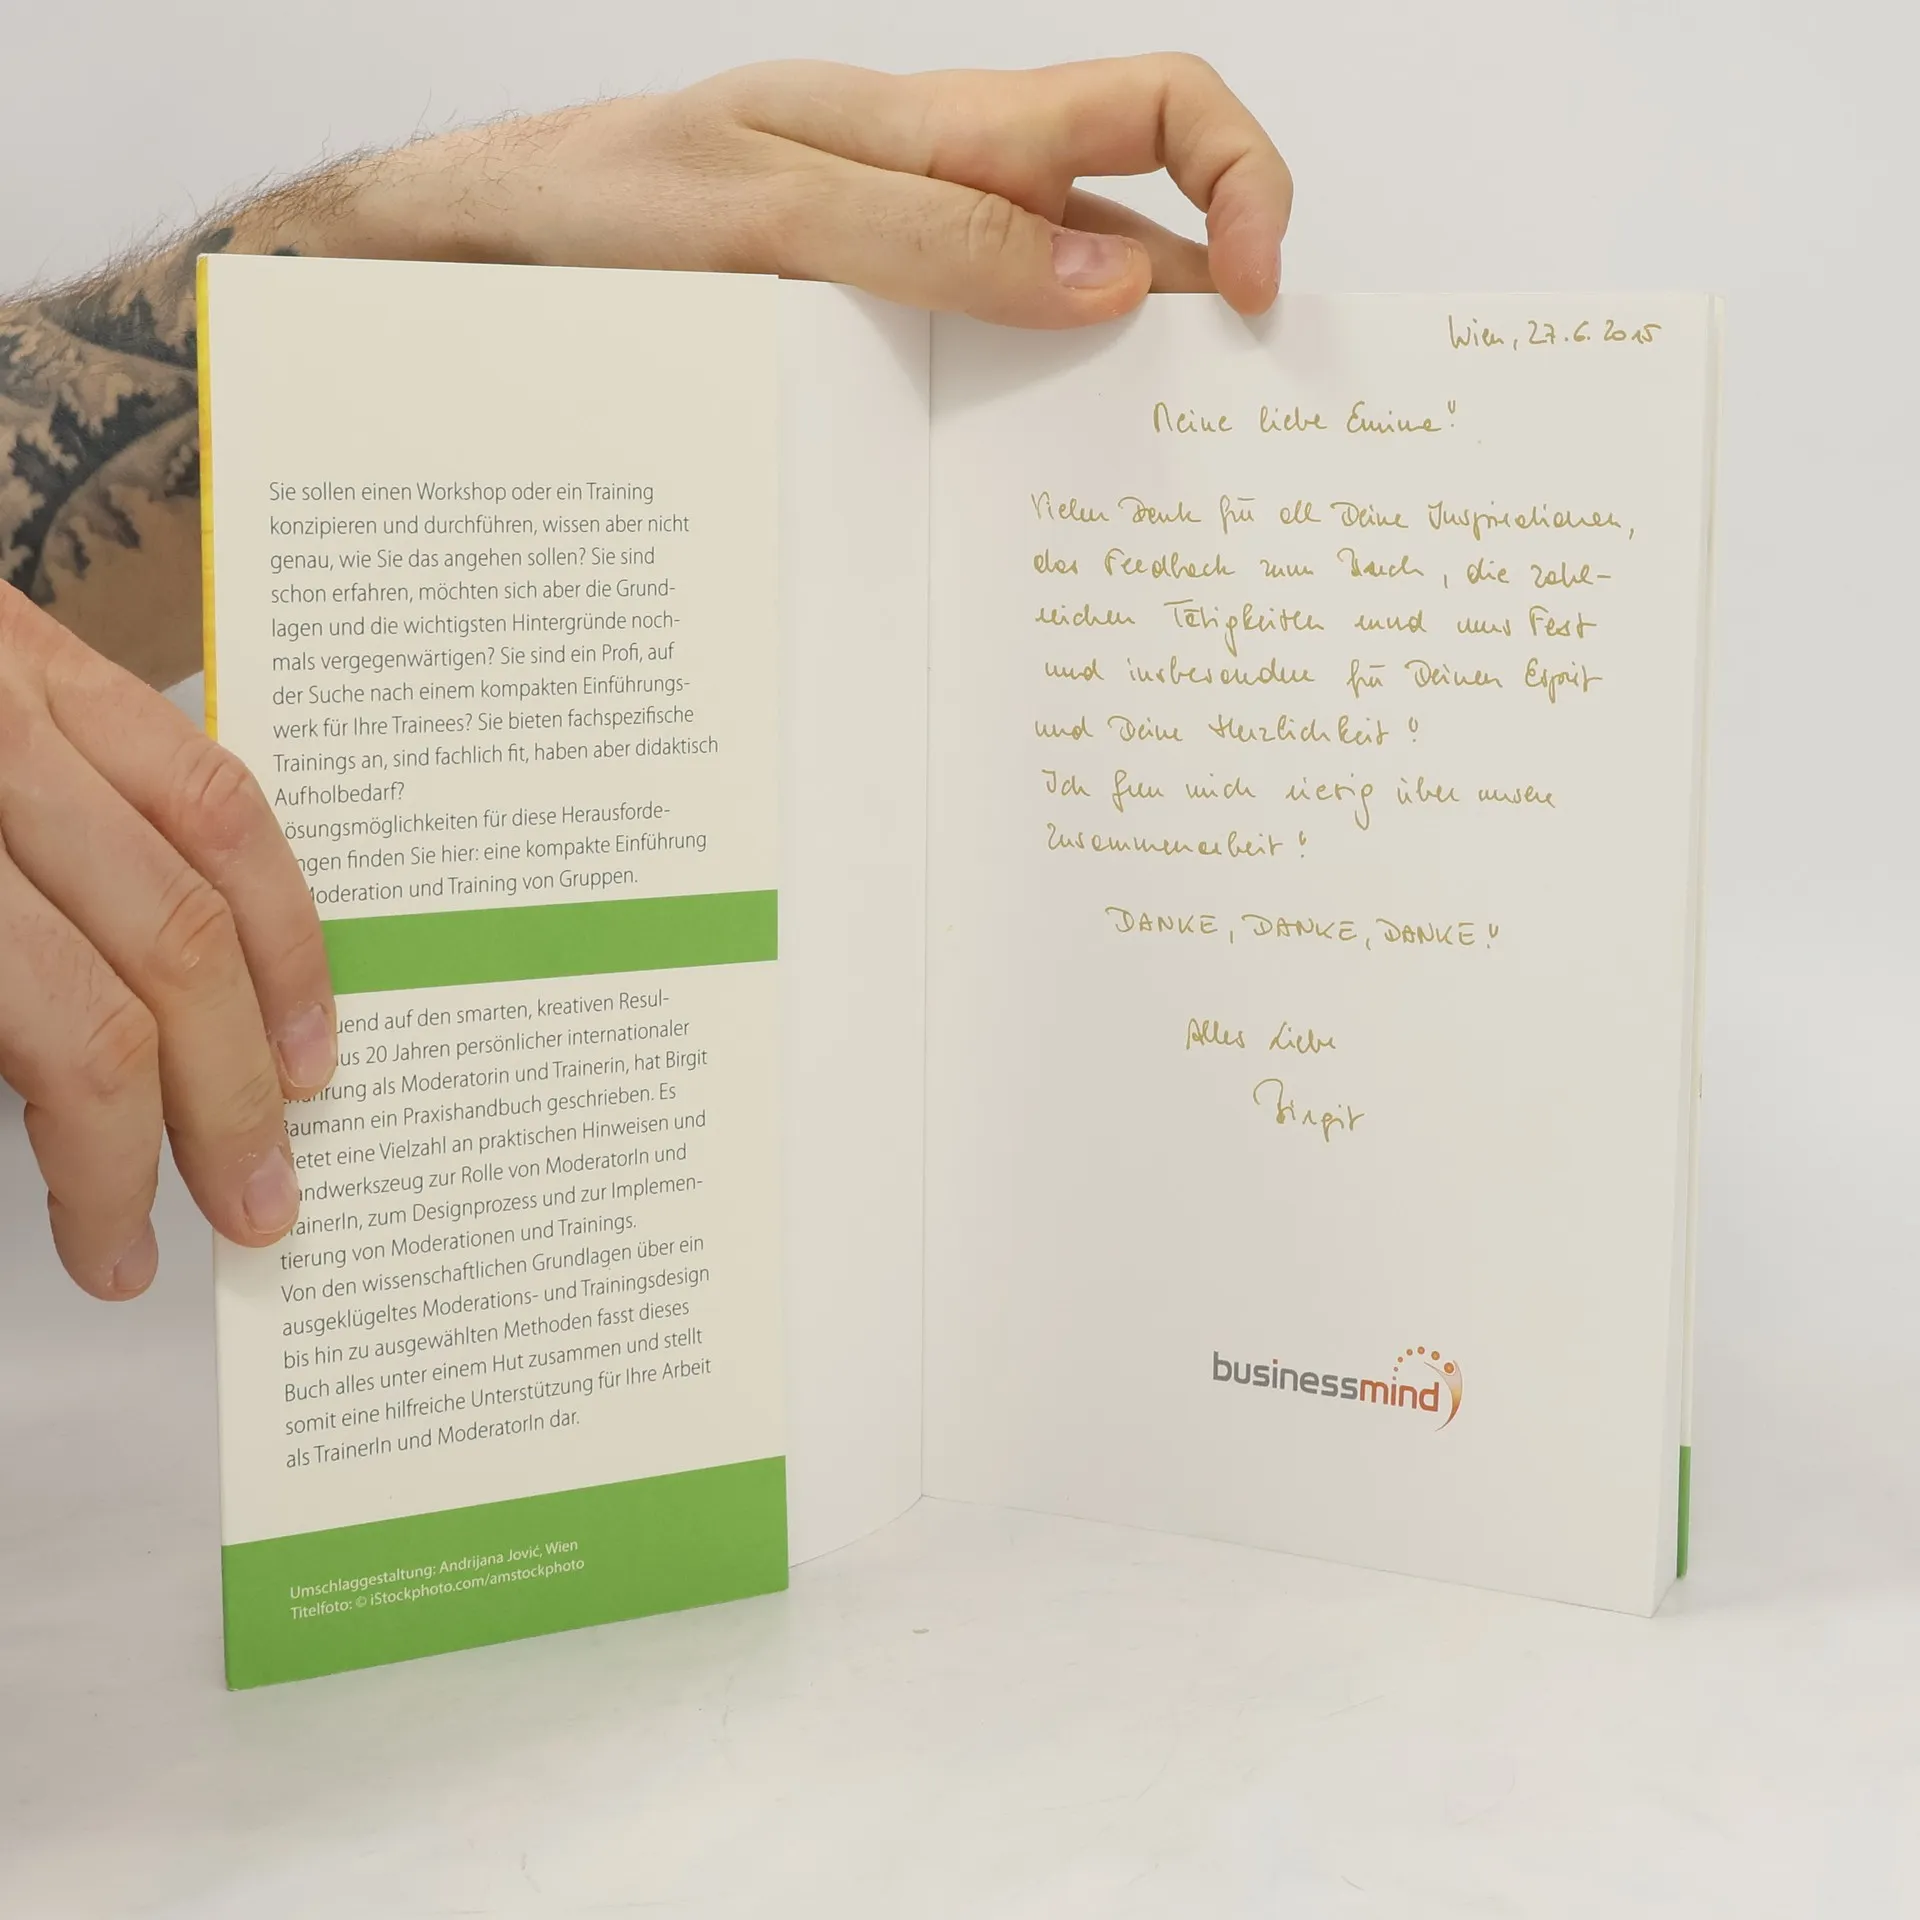 Sie sollen einen Workshop oder ein Training
konzipieren und durchführen, wissen aber nicht
genau, wie Sie das angehen sollen? Sie sind
schon erfahren, möchten sich aber die Grund-
lagen und die wichtigsten Hintergründe noch-
mals vergegenwärtigen? Sie sind ein Profi, auf
der Suche nach einem kompakten Einführungs-
werk für Ihre Trainees? Sie bieten fachspezifische
Trainings an, sind fachlich fit, haben aber didaktisch
Aufholbedarf?
ösungsmöglichkeiten für diese Herausforde-
ngen finden Sie hier: eine kompakte Einführung
Moderation und Training von Gruppen.
uend auf den smarten, kreativen Resul-
us 20 Jahren persönlicher internationaler
hrung als Moderatorin und Trainerin, hat Birgit
Baumann ein Praxishandbuch geschrieben. Es
ietet eine Vielzahl an praktischen Hinweisen und
andwerkszeug zur Rolle von ModeratorIn und
rainerIn, zum Designprozess und zur Implemen-
tierung von Moderationen und Trainings.
Von den wissenschaftlichen Grundlagen über ein
ausgeklügeltes Moderations- und Trainingsdesign
bis hin zu ausgewählten Methoden fasst dieses
Buch alles unter einem Hut zusammen und stellt
somit eine hilfreiche Unterstützung für Ihre Arbeit
als TrainerIn und ModeratorIn dar.
Umschlaggestaltung: Andrijana Jović, Wien
Titelfoto: © iStockphoto.com/amstockphoto
Wien, 27.6.2015
Meine liebe Emine!
Vielen Dank für all Deine Inspirationen,
das Feedback zum Buch, die zahl-
reichen Tätigkeiten rund ums Fest
und insbesondere für Deinen Esprit
und Deine Herzlichkeit!
Ich freu mich riesig über unsere
Zusammenarbeit!
DANKE, DANKE, DANKE!
Alles Liebe
Birgit
businessmind